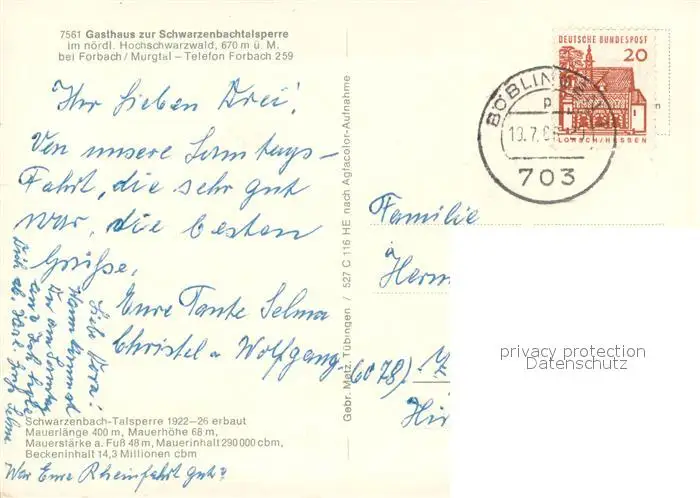 7561 Gasthaus zur Schwarzenbachtalsperre
im nördl. Hochschwarzwald, 670 m ü. M.
bei Forbach / Murgtal – Telefon Forbach 259
Ihr lieben Drei!
Von unsere Samtags-
Fahrt, die sehr gut
war, die besten
Grüße,
Eure Tante Selma
Christel u Wolfgang.
Liebe Vera!
Wann kommst
Du am Samstag
und ich hole
Dich ab.
Selma
Schwarzenbach-Talsperre 1922–26 erbaut
Mauerlänge 400 m, Mauerhöhe 68 m,
Mauerstärke a. Fuß 48 m, Mauerinhalt 290 000 cbm,
Beckeninhalt 14,3 Millionen cbm
War Eure Rheinfahrt gut?
Gebr. Metz, Tübingen / 527 C 116 HE nach Agfacolor-Aufnahme
DEUTSCHE BUNDESPOST
20
LORSCH/HESSEN
BÖBLINGEN
p
703
Familie
Herm
6078)
privacy protection
Datenschutz